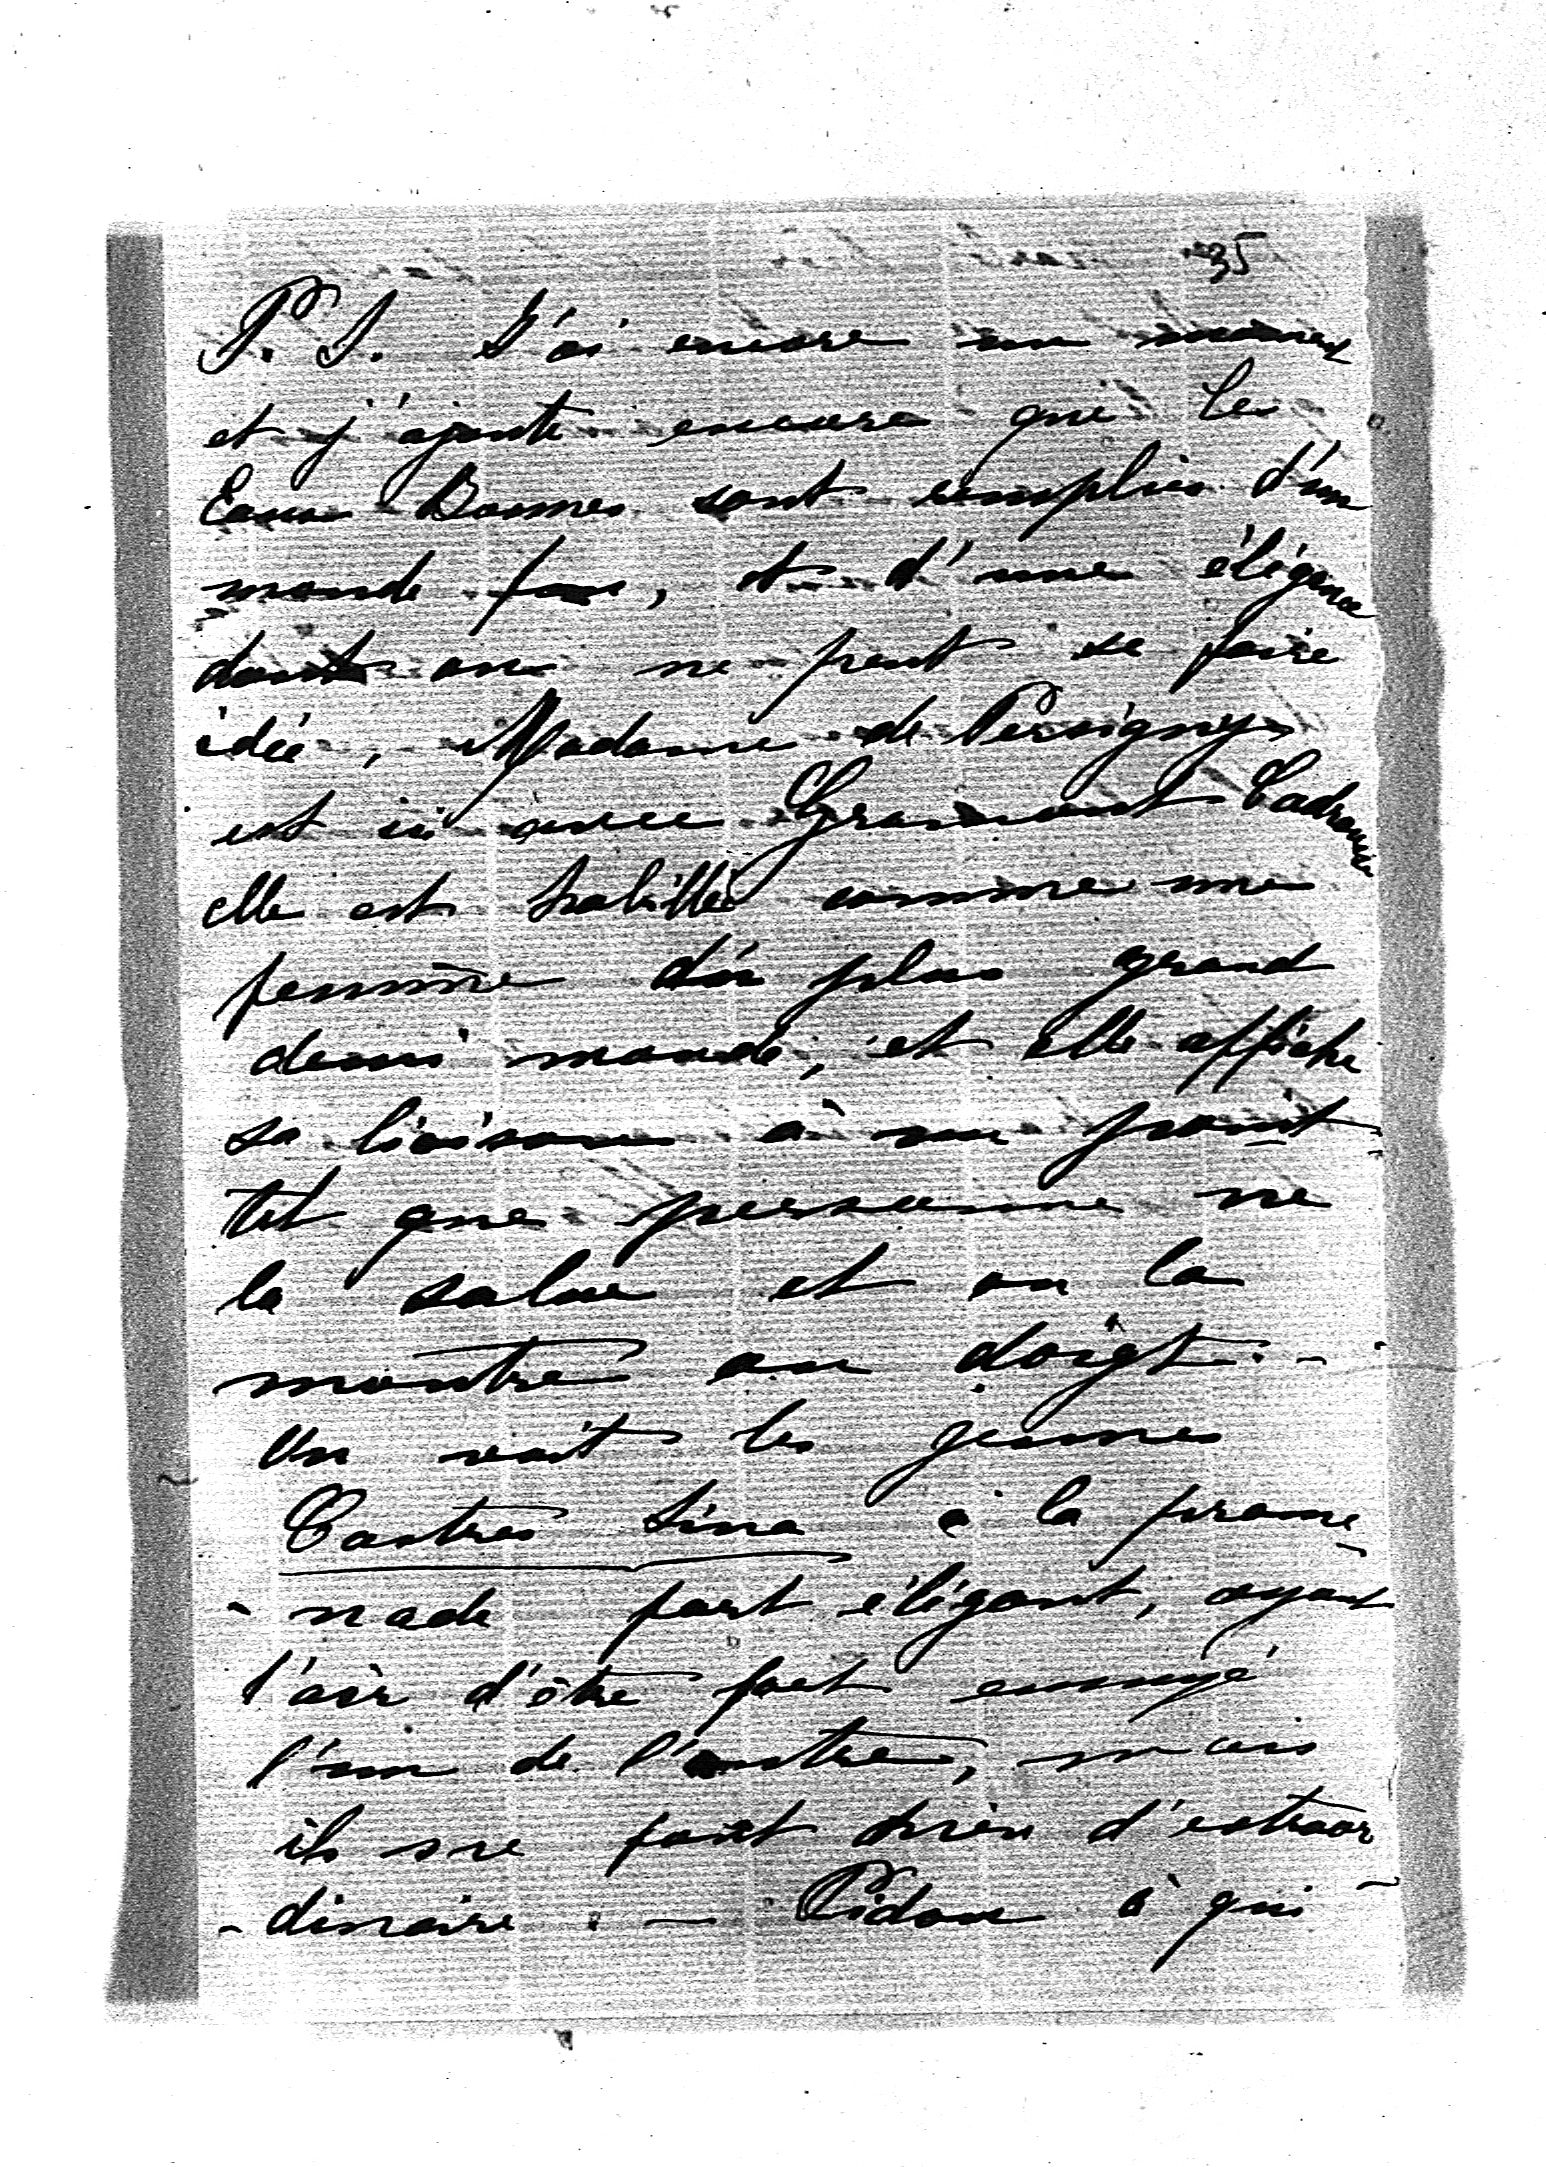 35
P. S. J'ai encore un moment
et j'ajoute encore que les
Eaux Bonnes sont remplies d'un
monde fou, et d'une élégance
dont on ne peut se faire
idée, Madame de Persigny
est ici avec Gramont Caderousse
elle est habillée comme une
femme du plus grand
demi monde, et elle affiche
sa liaison à un point
tel que personne ne
la salue et on la
montre au doigt. -
On voit les jeunes
Castries Sina à la prome
- nade fort élégant, ayant
l'air d'être fort ennuyé
l'un de l'autre, mais
ils ne font rien d'extraor
- dinaire. - Pidoux à qui